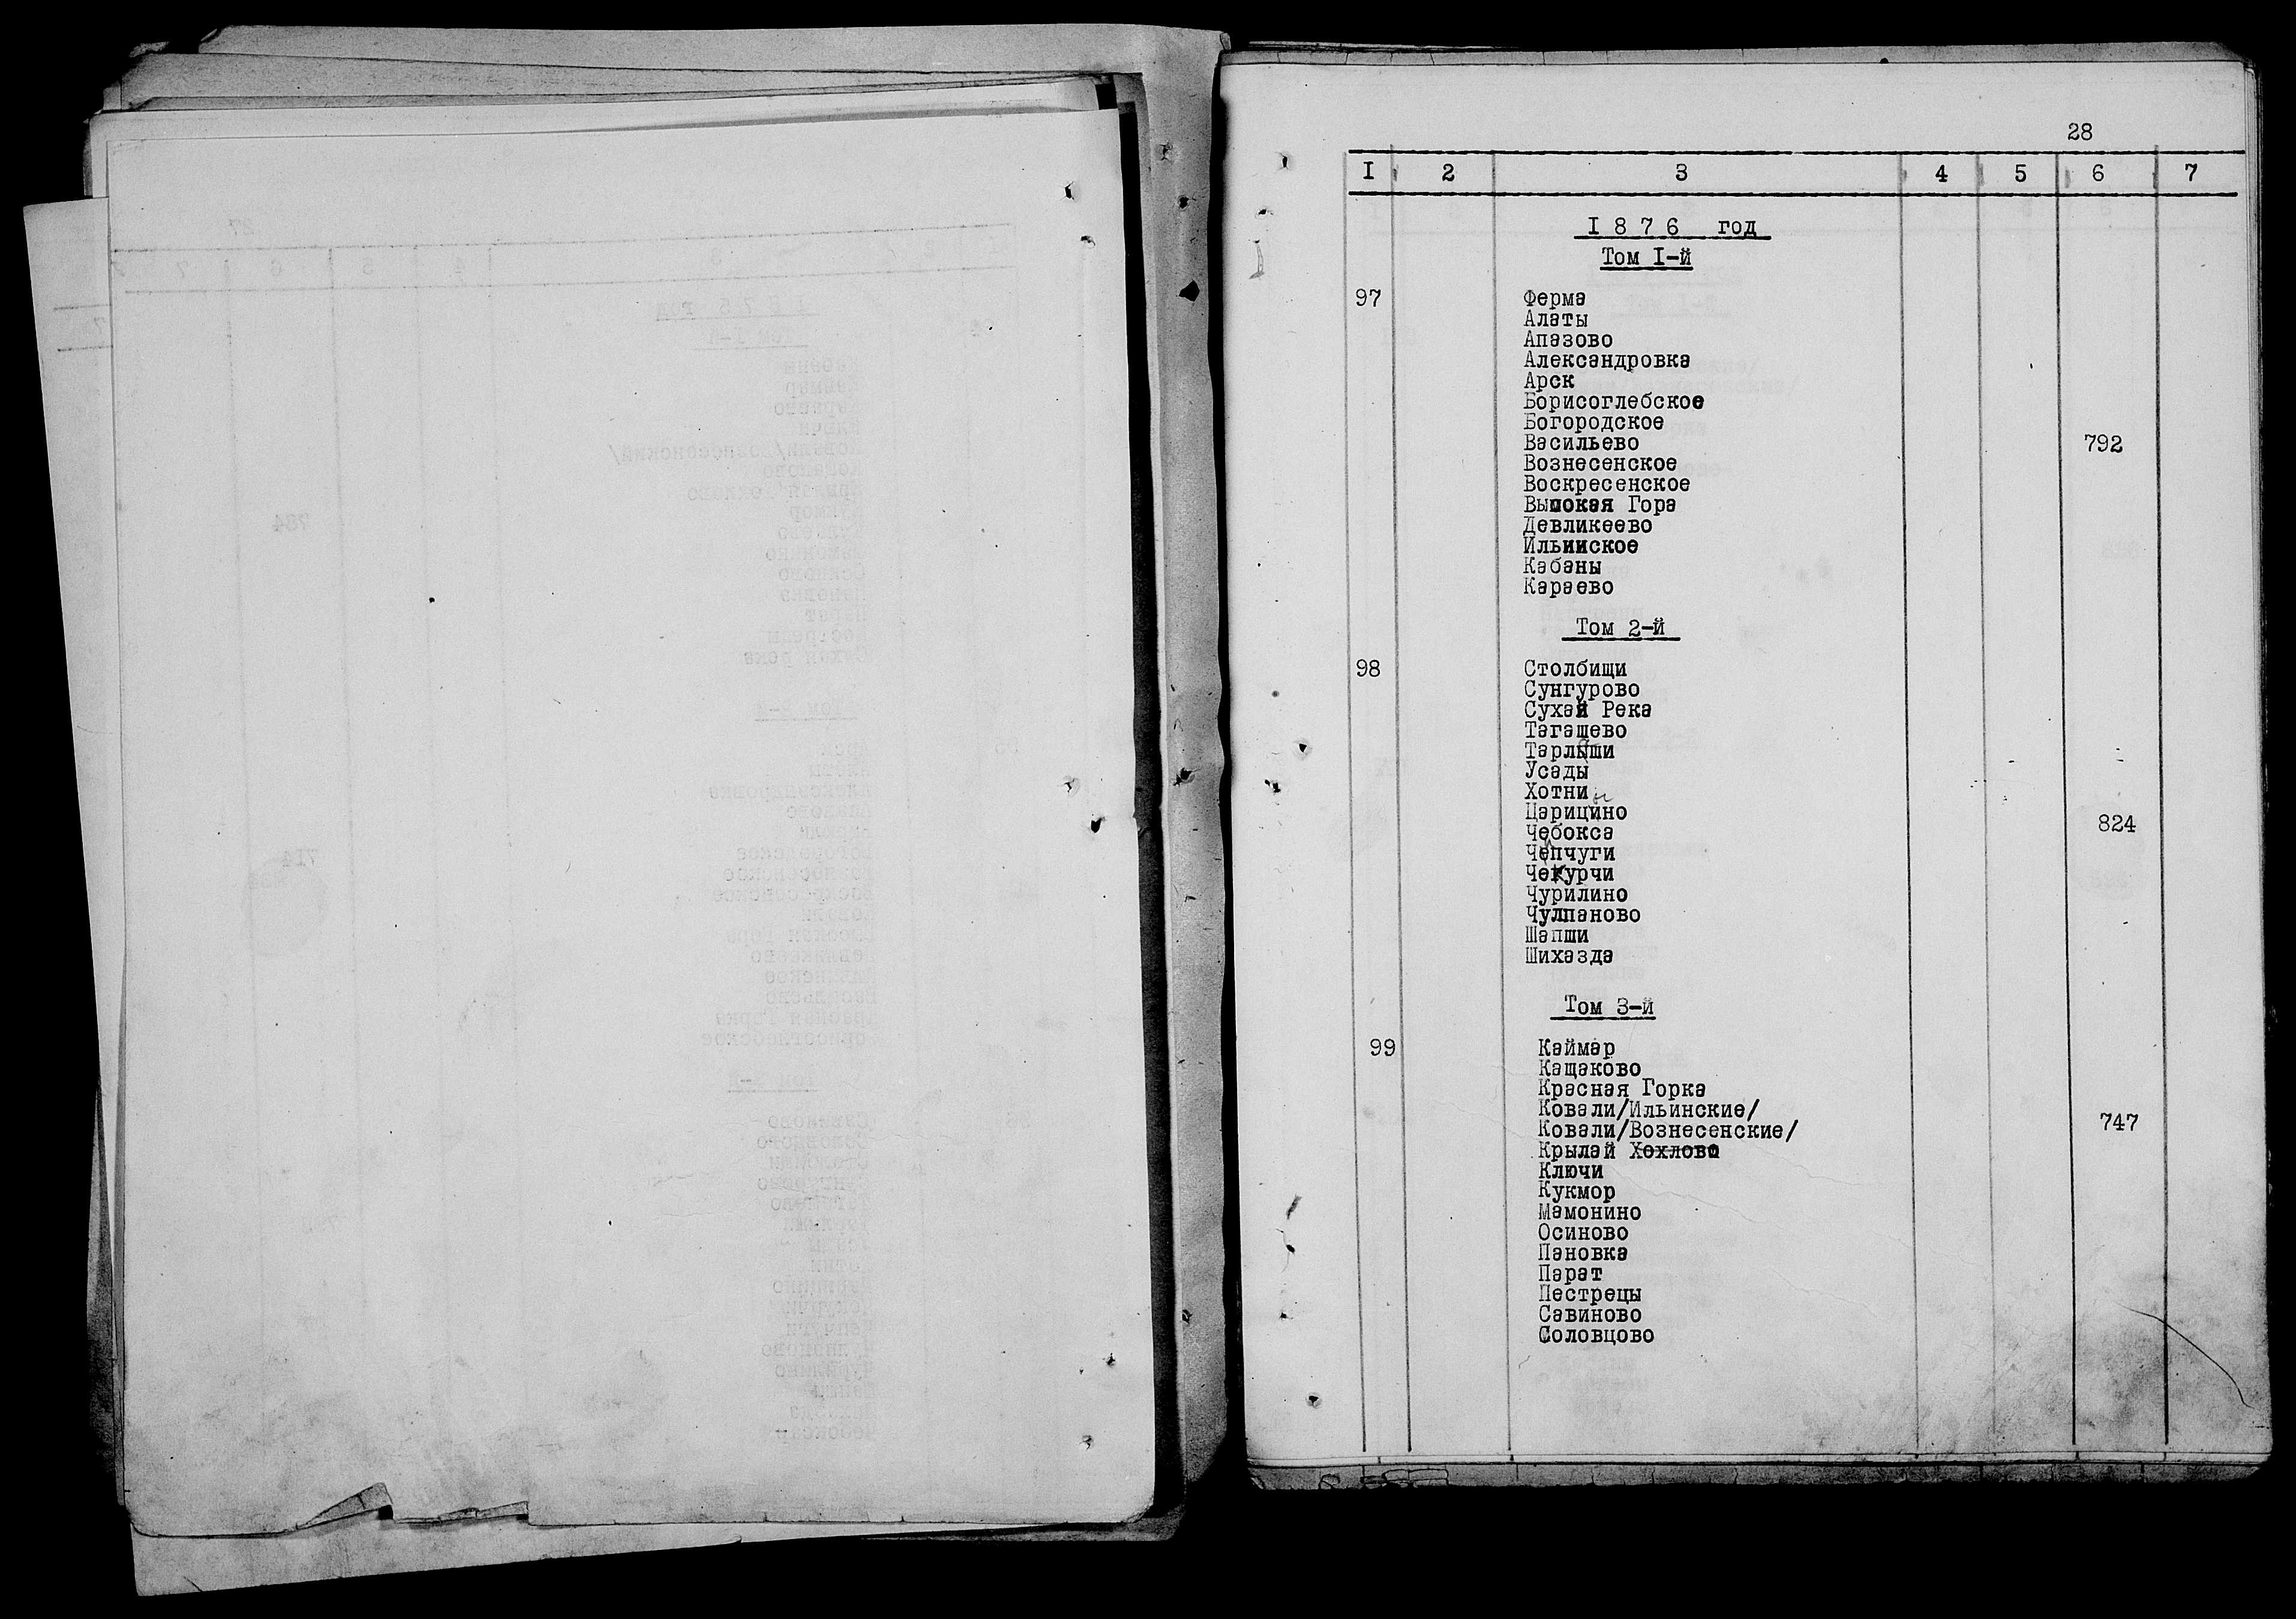 28
I 2 3 4 5 6 7
I 8 7 6 год
Том I-й
97 Ферма
Алаты
Апазово
Александровка
Арск
Борисоглебское
Богородское
Васильево 792
Вознесенское
Воскресенское
Высокая Гора
Девликеево
Ильинское
Кабаны
Караево
Том 2-й
98 Столбищи
Сунгурово
Сухая Река
Тагашево
Тарлаши
Усады
Хотни
Царицино
Чебокса 824
Чепчуги
Чекурчи
Чурилино
Чулпаново
Шапши
Шихазда
Том 3-й
99 Каймар
Кащаково
Красная Горка
Ковали/Ильинские/
Ковали/Вознесенские/ 747
Крылай Хохлово
Ключи
Кукмор
Мамонино
Осиново
Пановка
Парат
Пестрецы
Савиново
Соловцово